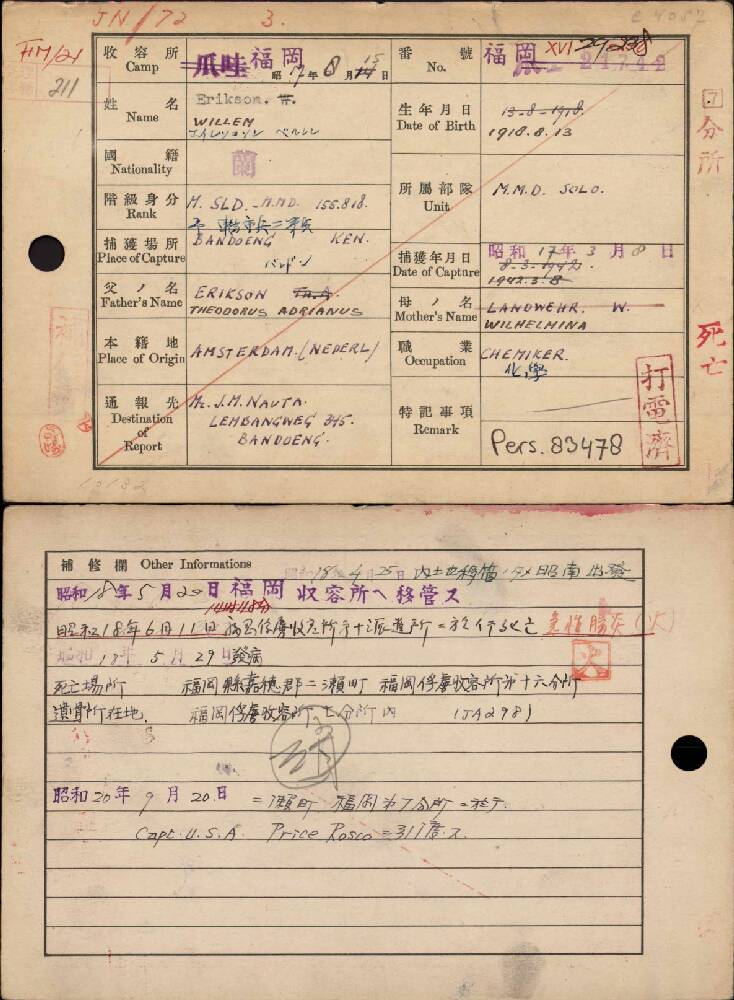 JN/72 3.
211
收容所 Camp 爪哇 福岡 昭17年8月15日
番號 No. 福岡 XVI
姓名 Name Erikson. W.
WILLEM
生年月日 Date of Birth 13-8-1918.
1918.8.13
7
分所
國籍 Nationality 蘭
階級身分 Rank M. SLD. - M.M.D. 155.818.
所屬部隊 Unit M.M.D. SOLO.
捕獲場所 Place of Capture BANDOENG KEN.
バンドン
捕獲年月日 Date of Capture 昭和17年3月8日
8-3-1942.
1942.3.8
父ノ名 Father's Name ERIKSON Th.A.
THEODORUS ADRIANUS
母ノ名 Mother's Name LANDWEHR. W.
WILHELMINA
死亡
本籍地 Place of Origin AMSTERDAM. (NEDERL)
職業 Occupation CHEMIKER.
化學
通報先 Destination of Report M. J.H. NAUTA.
LEMBANGWEG 345.
BANDOENG.
特記事項 Remark
Pers. 83478
打電濟
補修欄 Other Informations
18 4 25日 內地移管ノタメ昭南出發
昭和18年5月20日福岡收容所ヘ移管ス
昭和18年6月11日
急性腸炎(火)
昭和18年5月29日發病
火
死亡場所 福岡縣嘉穂郡二瀬町 福岡俘虜收容所第十六分所
遺骨所在地 福岡俘虜收容所七分所內 (JA298)
昭和20年9月20日 二瀬町 福岡第7分所ニ於テ
Capt. U.S.A. Price Rosco ニ引渡ス